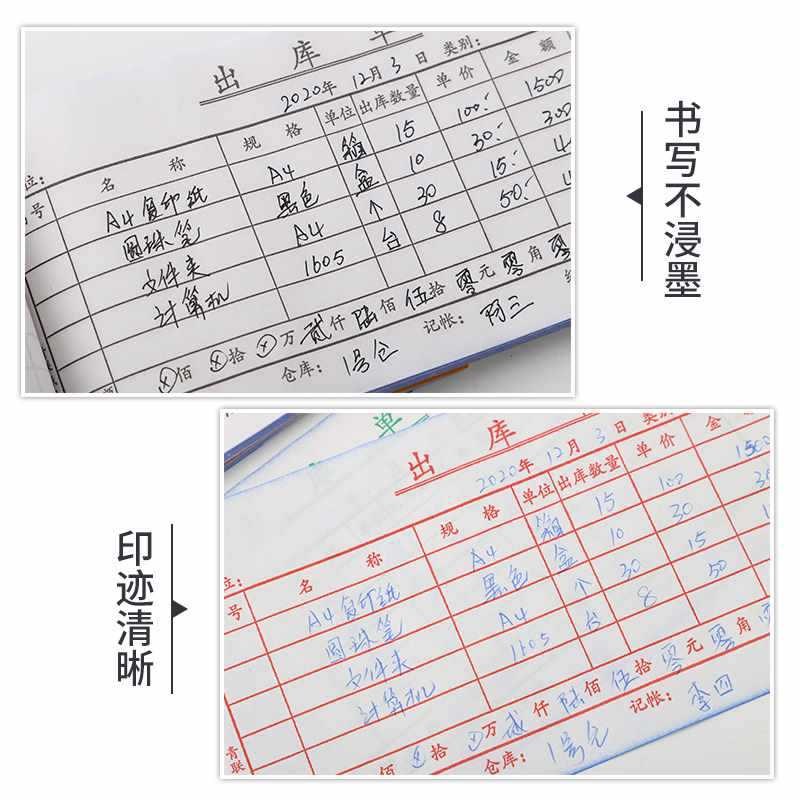 出 库 单
2020年 12月 3日 类别:
位:
号 名 称 规 格 单位 出库数量 单 价 金 额
A4复印纸 A4 箱 15 100.- 1500
圆珠笔 黑色 盒 10 30.- 300
文件夹 A4 个 30 15.-
计算机 1605 台 8 50.-
佰 拾 万 贰 仟 陆 佰 伍 拾 零 元 零 角 零
仓库: 1号仓 记帐: 阿三
书写不浸墨
单
出 库
2020年 12月 3日 类别
位:
号 名 称 规 格 单位 出库数量 单 价 金
A4复印纸 A4 箱 15 100 1500
圆珠笔 黑色 盒 10 30
文件夹 A4 个 30 15
计算机 1605 台 8 50
佰 拾 万 贰 仟 陆 佰 伍 拾 零 元 零 角
青联 仓库: 1号仓 记帐: 李四
印迹清晰